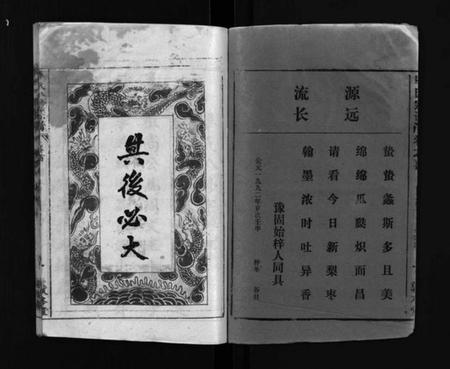 源远
流长
蛰蛰螽斯多且美
绵绵瓜瓞炽而昌
请看今日新梨枣
翰墨浓时吐异香
公元一九九二年岁次壬申
豫固始梓人同具
其後必大